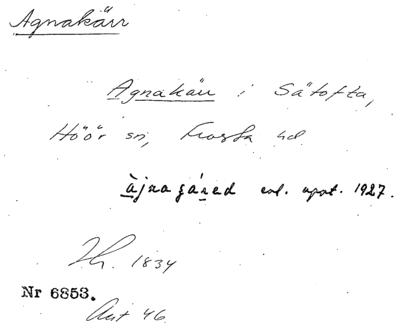 Agnakärr
Agnakärr i Sätofta,
Höör sn, Frosta hd
àjnagáred enl. uppt. 1927.
1834
Nr 6853.
Aut 46